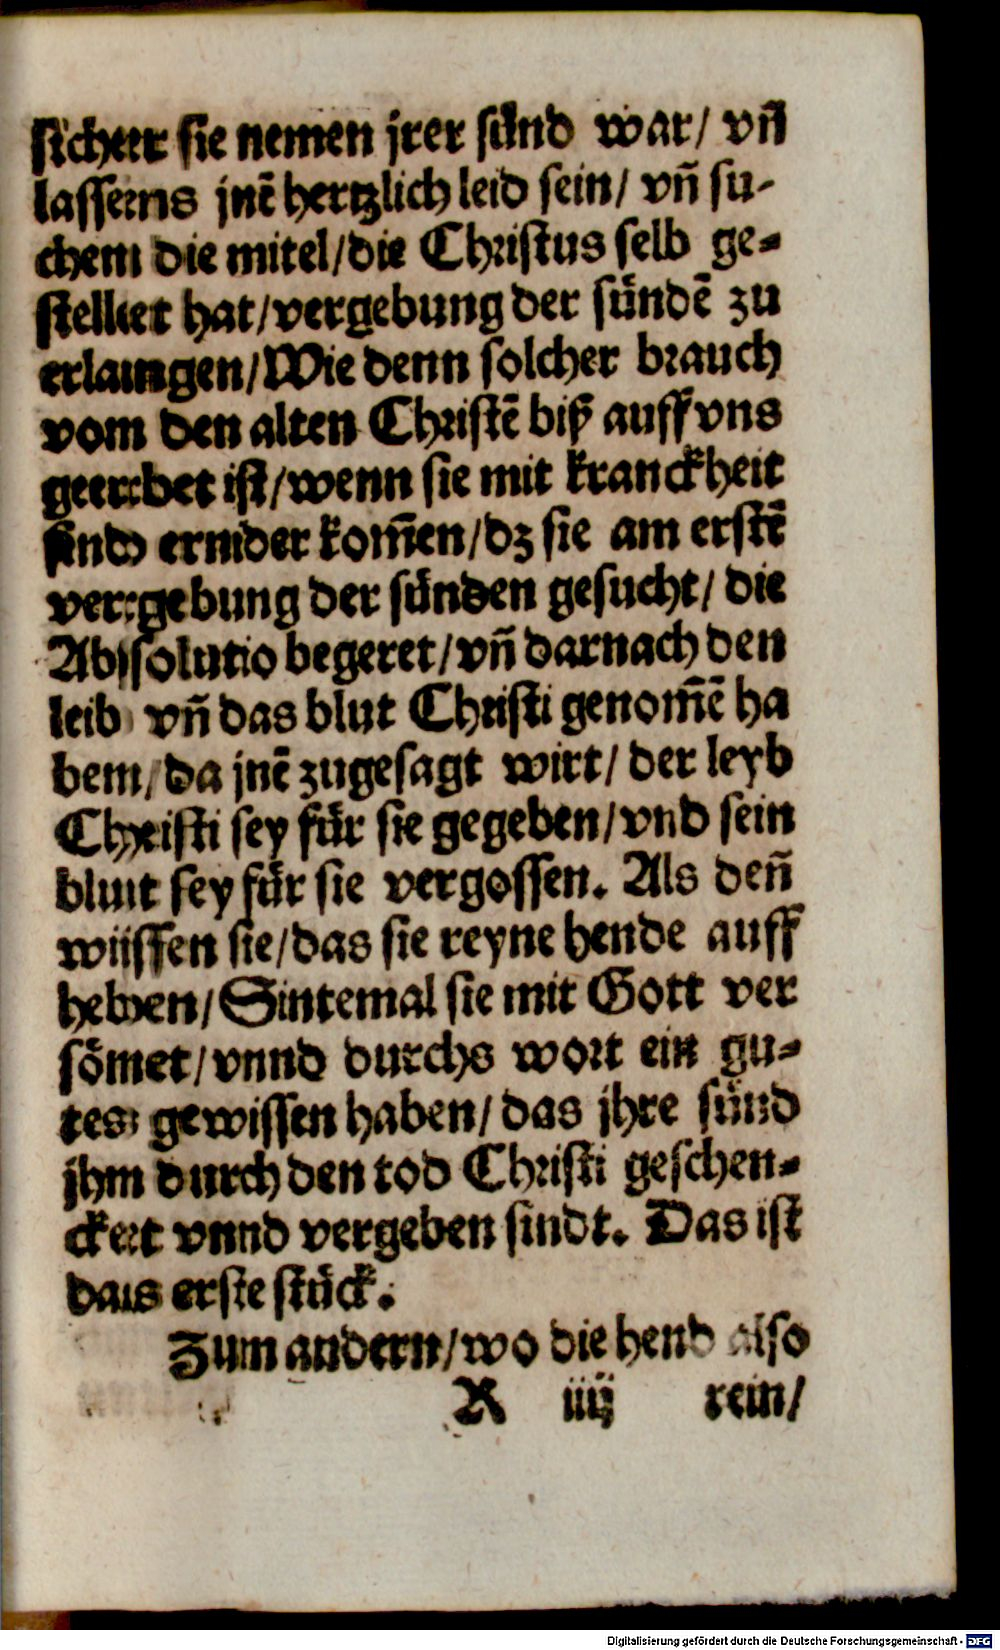 sicher sie nemen jrer sünd war/ vñ
lassens jnẽ hertzlich leid sein/ vñ su-
chen die mitel/die Christus selb ge-
stellet hat/vergebung der sündẽ zu
erlangen/Wie denn solcher brauch
von den alten Christẽ biß auff vns
geerbet ist/wenn sie mit kranckheit
sind ernider kom̃en/dz sie am erstẽ
vergebung der sünden gesucht/ die
Absolutio begeret/vñ darnach den
leib vñ das blut Christi genom̃ẽ ha
ben/da jnẽ zugesagt wirt/ der leyb
Christi sey für sie gegeben/vnd sein
blut sey für sie vergossen. Als deñ
wissen sie/das sie reyne hende auff
heben/Sintemal sie mit Gott ver
sönet/vnnd durchs wort ein gu-
tes gewissen haben/das jhre sünd
jhn durch den tod Christi geschen-
cket vnnd vergeben sindt. Das ist
das erste stück.
Zum andern/wo die hend also
R iiij rein/
Digitalisierung gefördert durch die Deutsche Forschungsgemeinschaft - DFG